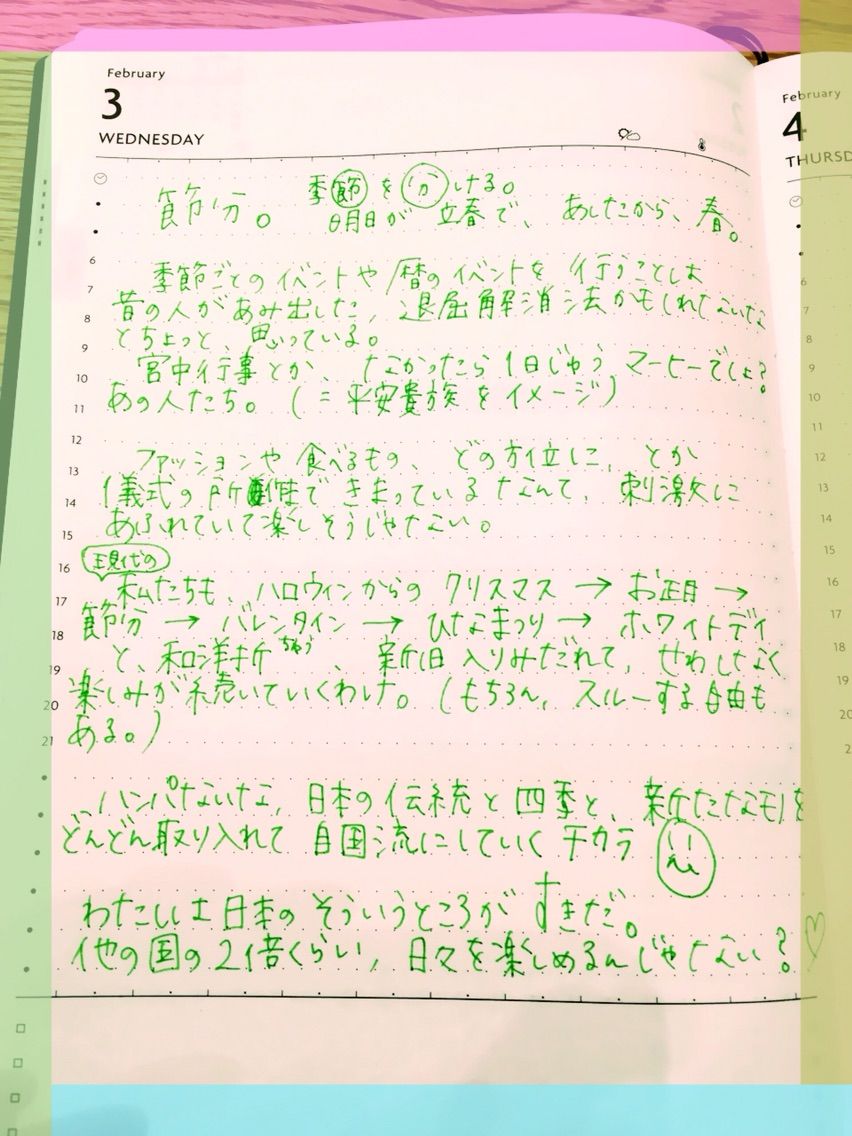 February
3
WEDNESDAY
February
4
THURSD
節分。 季節を分ける。
明日が 立春で、 あしたから、春。
季節ごとのイベントや暦のイベントを 行うことは
昔の人があみ出した, 退屈解消法かもしれないな
とちょっと、思っている。
宮中行事とか、なかったら 1日じゅう マーヒーでしょ?
あの人たち。(=平安貴族をイメージ)
ファッションや 食べるもの、 どの方位に、とか
儀式の所作まで きまっているなんて、刺激に
あふれていて楽しそうじゃない。
現代の
私たちも、ハロウィンからの クリスマス → お正月 →
節分 → バレンタイン → ひなまつり → ホワイトデイ
と、和洋折ちゅう、 新旧入りみだれて, せわしなく
楽しみが続いていくわけ。(もちろん, スルーする自由も
ある。)
…ハンパないな, 日本の伝統と四季と、新たなモノを
どんどん取り入れて 自国流にしていくチカラ
わたしは日本の そういうところが すきだ。
他の国の2倍くらい, 日々を楽しめるんじゃない? ♡
6
7
8
9
10
11
12
13
14
15
16
17
18
19
20
21
6
7
8
9
10
11
12
13
14
15
16
17
18
19
20
2